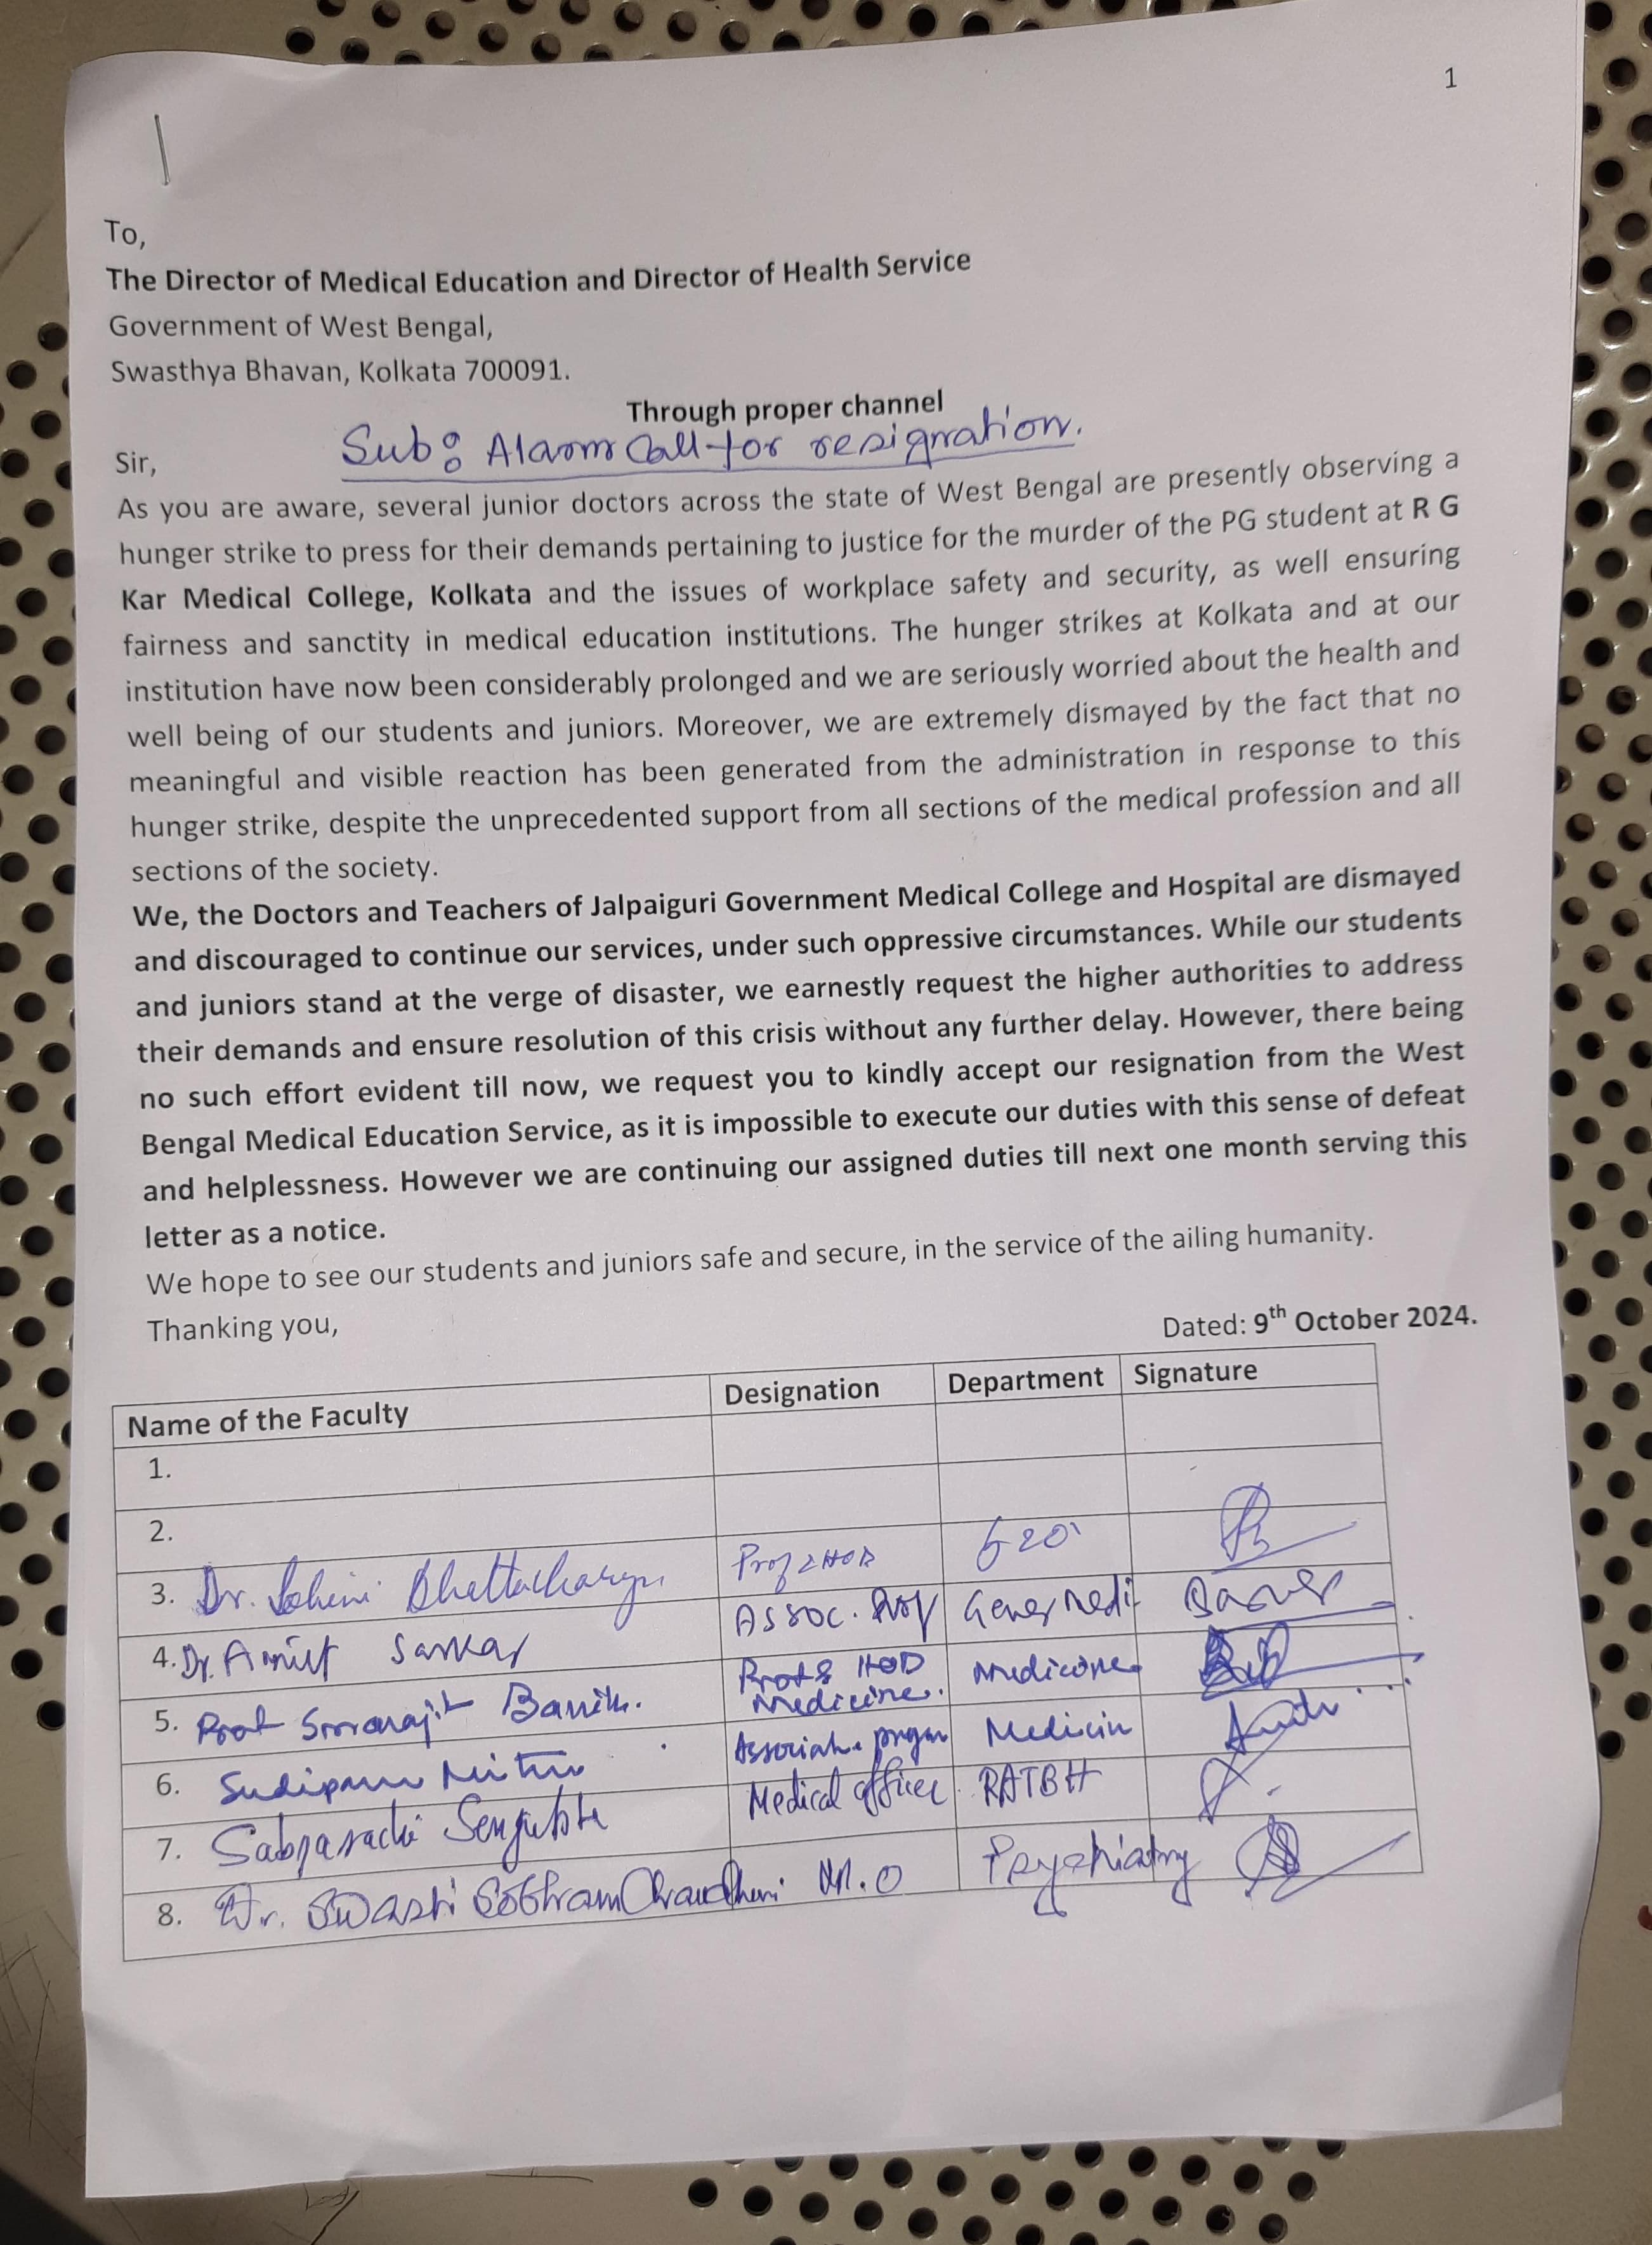 1
To,
The Director of Medical Education and Director of Health Service
Government of West Bengal,
Swasthya Bhavan, Kolkata 700091.
Through proper channel
Sub: Alarm Call for resignation.
Sir,
As you are aware, several junior doctors across the state of West Bengal are presently observing a
hunger strike to press for their demands pertaining to justice for the murder of the PG student at R G
Kar Medical College, Kolkata and the issues of workplace safety and security, as well ensuring
fairness and sanctity in medical education institutions. The hunger strikes at Kolkata and at our
institution have now been considerably prolonged and we are seriously worried about the health and
well being of our students and juniors. Moreover, we are extremely dismayed by the fact that no
meaningful and visible reaction has been generated from the administration in response to this
hunger strike, despite the unprecedented support from all sections of the medical profession and all
sections of the society.
We, the Doctors and Teachers of Jalpaiguri Government Medical College and Hospital are dismayed
and discouraged to continue our services, under such oppressive circumstances. While our students
and juniors stand at the verge of disaster, we earnestly request the higher authorities to address
their demands and ensure resolution of this crisis without any further delay. However, there being
no such effort evident till now, we request you to kindly accept our resignation from the West
Bengal Medical Education Service, as it is impossible to execute our duties with this sense of defeat
and helplessness. However we are continuing our assigned duties till next one month serving this
letter as a notice.
We hope to see our students and juniors safe and secure, in the service of the ailing humanity.
Thanking you,
Dated: 9th October 2024.
Name of the Faculty Designation Department Signature
1.
2.
3. Dr. Sohini Bhattacharya Prof & HOD
4. Dr. Amit Sarkar Assoc. Prof
5. Prof Smarajit Banik. Prof & HOD Medicine. Medicine
6. Associate Medicin
7. Sabyasachi Sengupta Medical officer RATBH
8. Dr. Swasti M.O Psychiatry